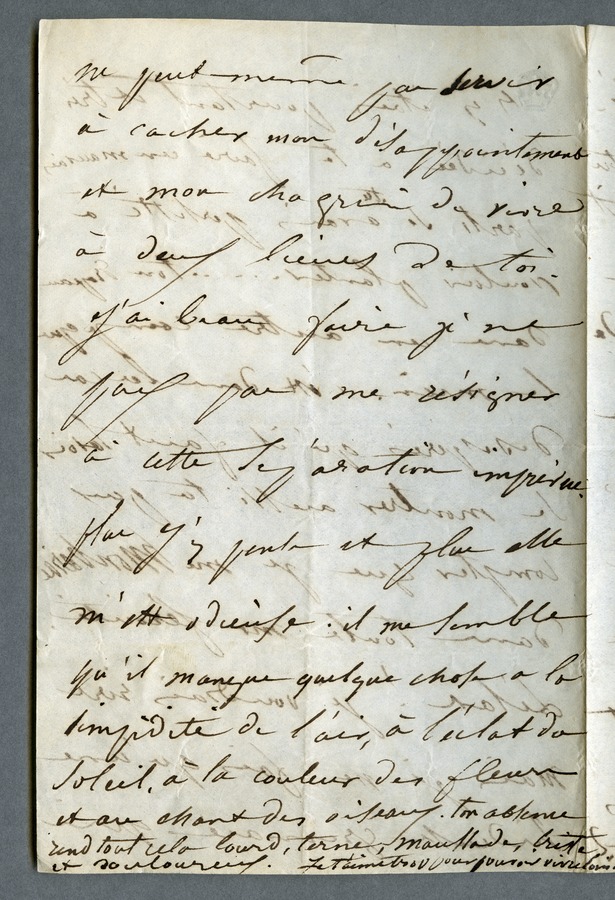 ne peut même pas servir
à cacher mon désappointement
et mon chagrin de vivre
à deux lieues de toi.
J'ai beau faire je ne
puis pas me résigner
à cette séparation imprévue.
Plus j'y pense et plus elle
m'est odieuse : il me semble
qu'il manque quelque chose a la
limpidité de l'air, à l'éclat du
soleil, à la couleur des fleurs
et au chant des oiseaux. ton absence
rend tout cela lourd, terne, maussade, triste
et douloureux. Je t'aime trop pour pouvoir vivre loin